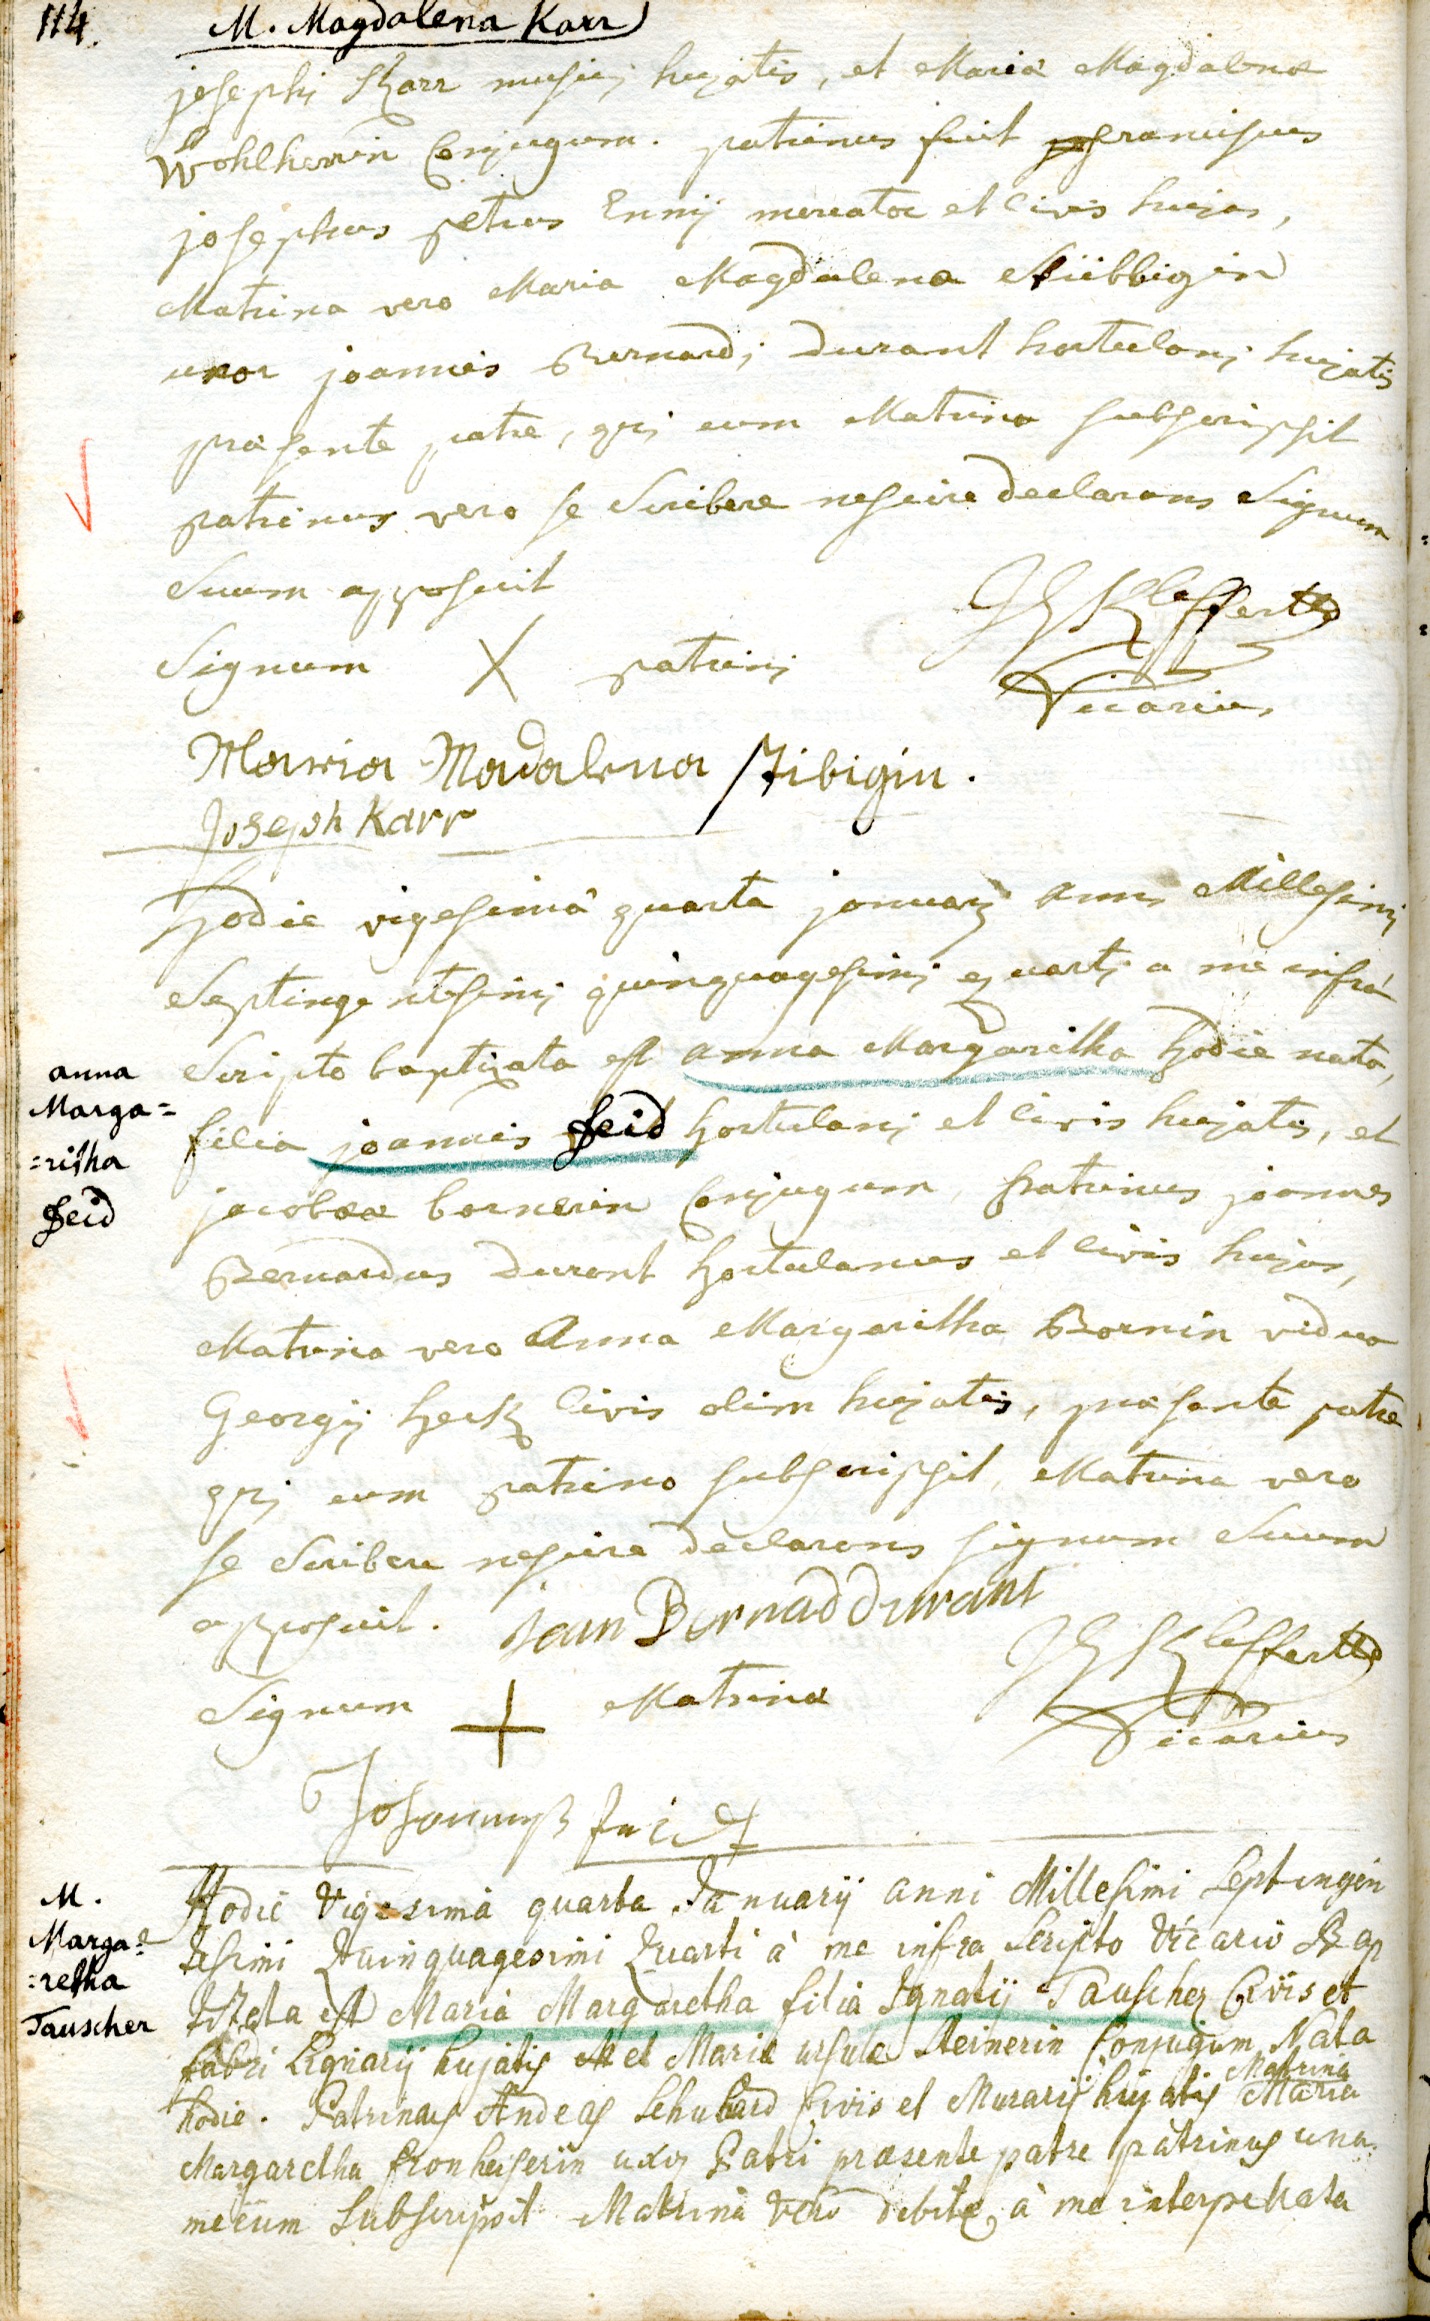 114. M. Magdalena Karr
josephi Karr musici hujatis, et Maria Magdalena
Wohlherrin Conjugum. patrinus fuit franciscus
josephus petrus Ennij mercator et Civis hujas,
Matrina vero Maria Magdalena Stübbigin
uxor joannis Bernardj Durant hortulanj hujatis
præsente patre, qui cum Matrina subscripsit
patrinus vero se Scribere nescire declarans Signum
Suum apposuit
Signum X patrinj
Kleffert
Vicarius
Maria Madalena Stibigin.
Joseph Karr
Hodie vigesimâ quarta januarij anni Millesimj
Septingentesimj quinquagesimj quartj a me infrà
Scripto baptizata est anna Margaritha hodie nata,
anna
Marga=
=ritha
feid
filia joannis feid hortulanj et Civis hujatis, et
jacobæa bornerin Conjugum, patrinus joannes
Bernardus Durant hortulanus et Civis hujas,
Matrina vero Anna Margaritha Bornin vidua
Georgij heck Civis olim hujatis, præsente patre
qui cum patrino subscripsit, Matrina vero
se Scribere nescire declarans signum Suum
apposuit. jean Bernad durant
Kleffert
Signum + Matrinæ
Vicarius
Johannes
M.
Marga=
=retha
Tauscher
Hodie Vigesimà quarta Januarij anni Millesimi Septingen
tesimi Quinquagesimi Quarti à me infra Scripto Vicario Bap
tizata est Maria Margaretha filia Ignatij Tauscher Civis et
fabri Lignarij hujatis et Mariæ ursulæ Steinerin Conjugum Nata
hodie. Patrinus Andeas Schubard Civis et Murarij hujatis Matrina Maria
Margaretha fronheiserin uxor præsente patre patrinus una
mecum Subscripsit Matrina Vero debite à me interpellata